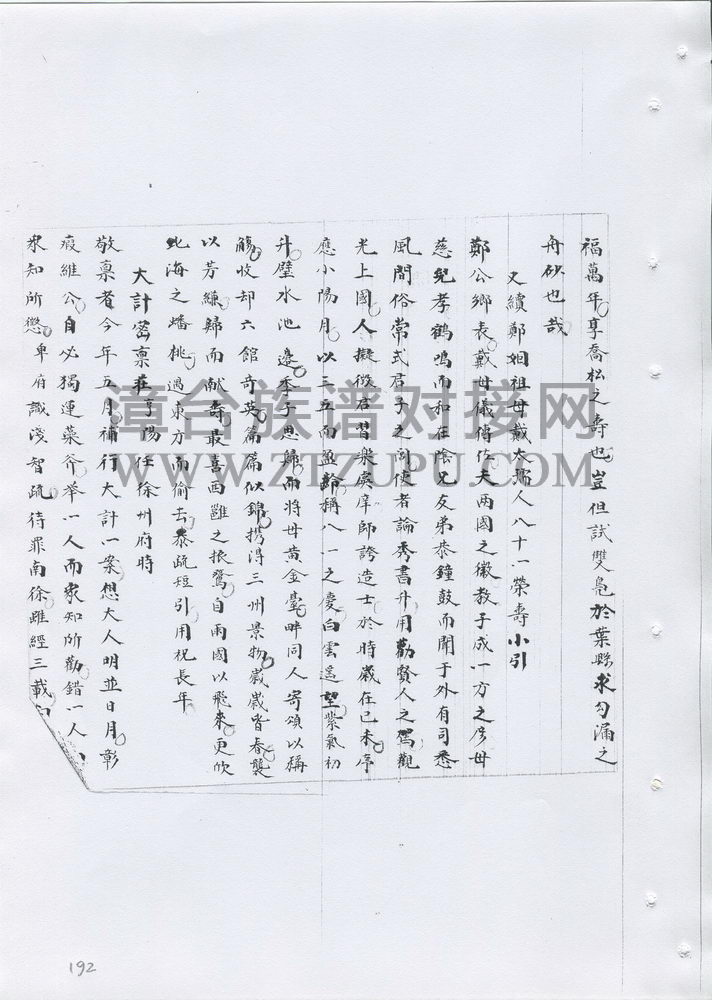 福萬年享喬松之壽也豈但試雙鳧於葉縣求勾漏之
丹砂也哉
又續鄭姻祖母戴太孺人八十一榮壽小引
鄭公鄉表戴母儀傳佑大兩國之徽教子成一方之彥母
慈兒孝鶴鳴而和在陰兄友弟恭鐘鼓而聞于外有司悉
風問俗常式君子之閭使者論秀書升用勸賢人之駕觀
光上國人擬徵君習樂處庠師誇造士於時歲在己未序
應小陽月以三五而盈齡稱八一之慶白雲遙望紫氣初
升璧水池邊季子思歸而將母黃金臺畔同人寄頌以稱
觴收却六館奇英篇篇似錦携得三州景物歲歲皆春襲
以芳縑歸而献壽最喜西雝之振鷺自兩國以飛來更欣
北海之蟠桃過東方而偷去恭疏短引用祝長年
大計密稟莊亨陽任徐州府時
敬稟者今年五月補行大計一案想大人明並日月彰
癉維公自必獨運藻斧舉一人而衆知所勸錯一人
衆知所懲卑府識淺智疏待罪南徐雖經三載
漳台族譜对接网
WWW.ZTZUPU.COM
192